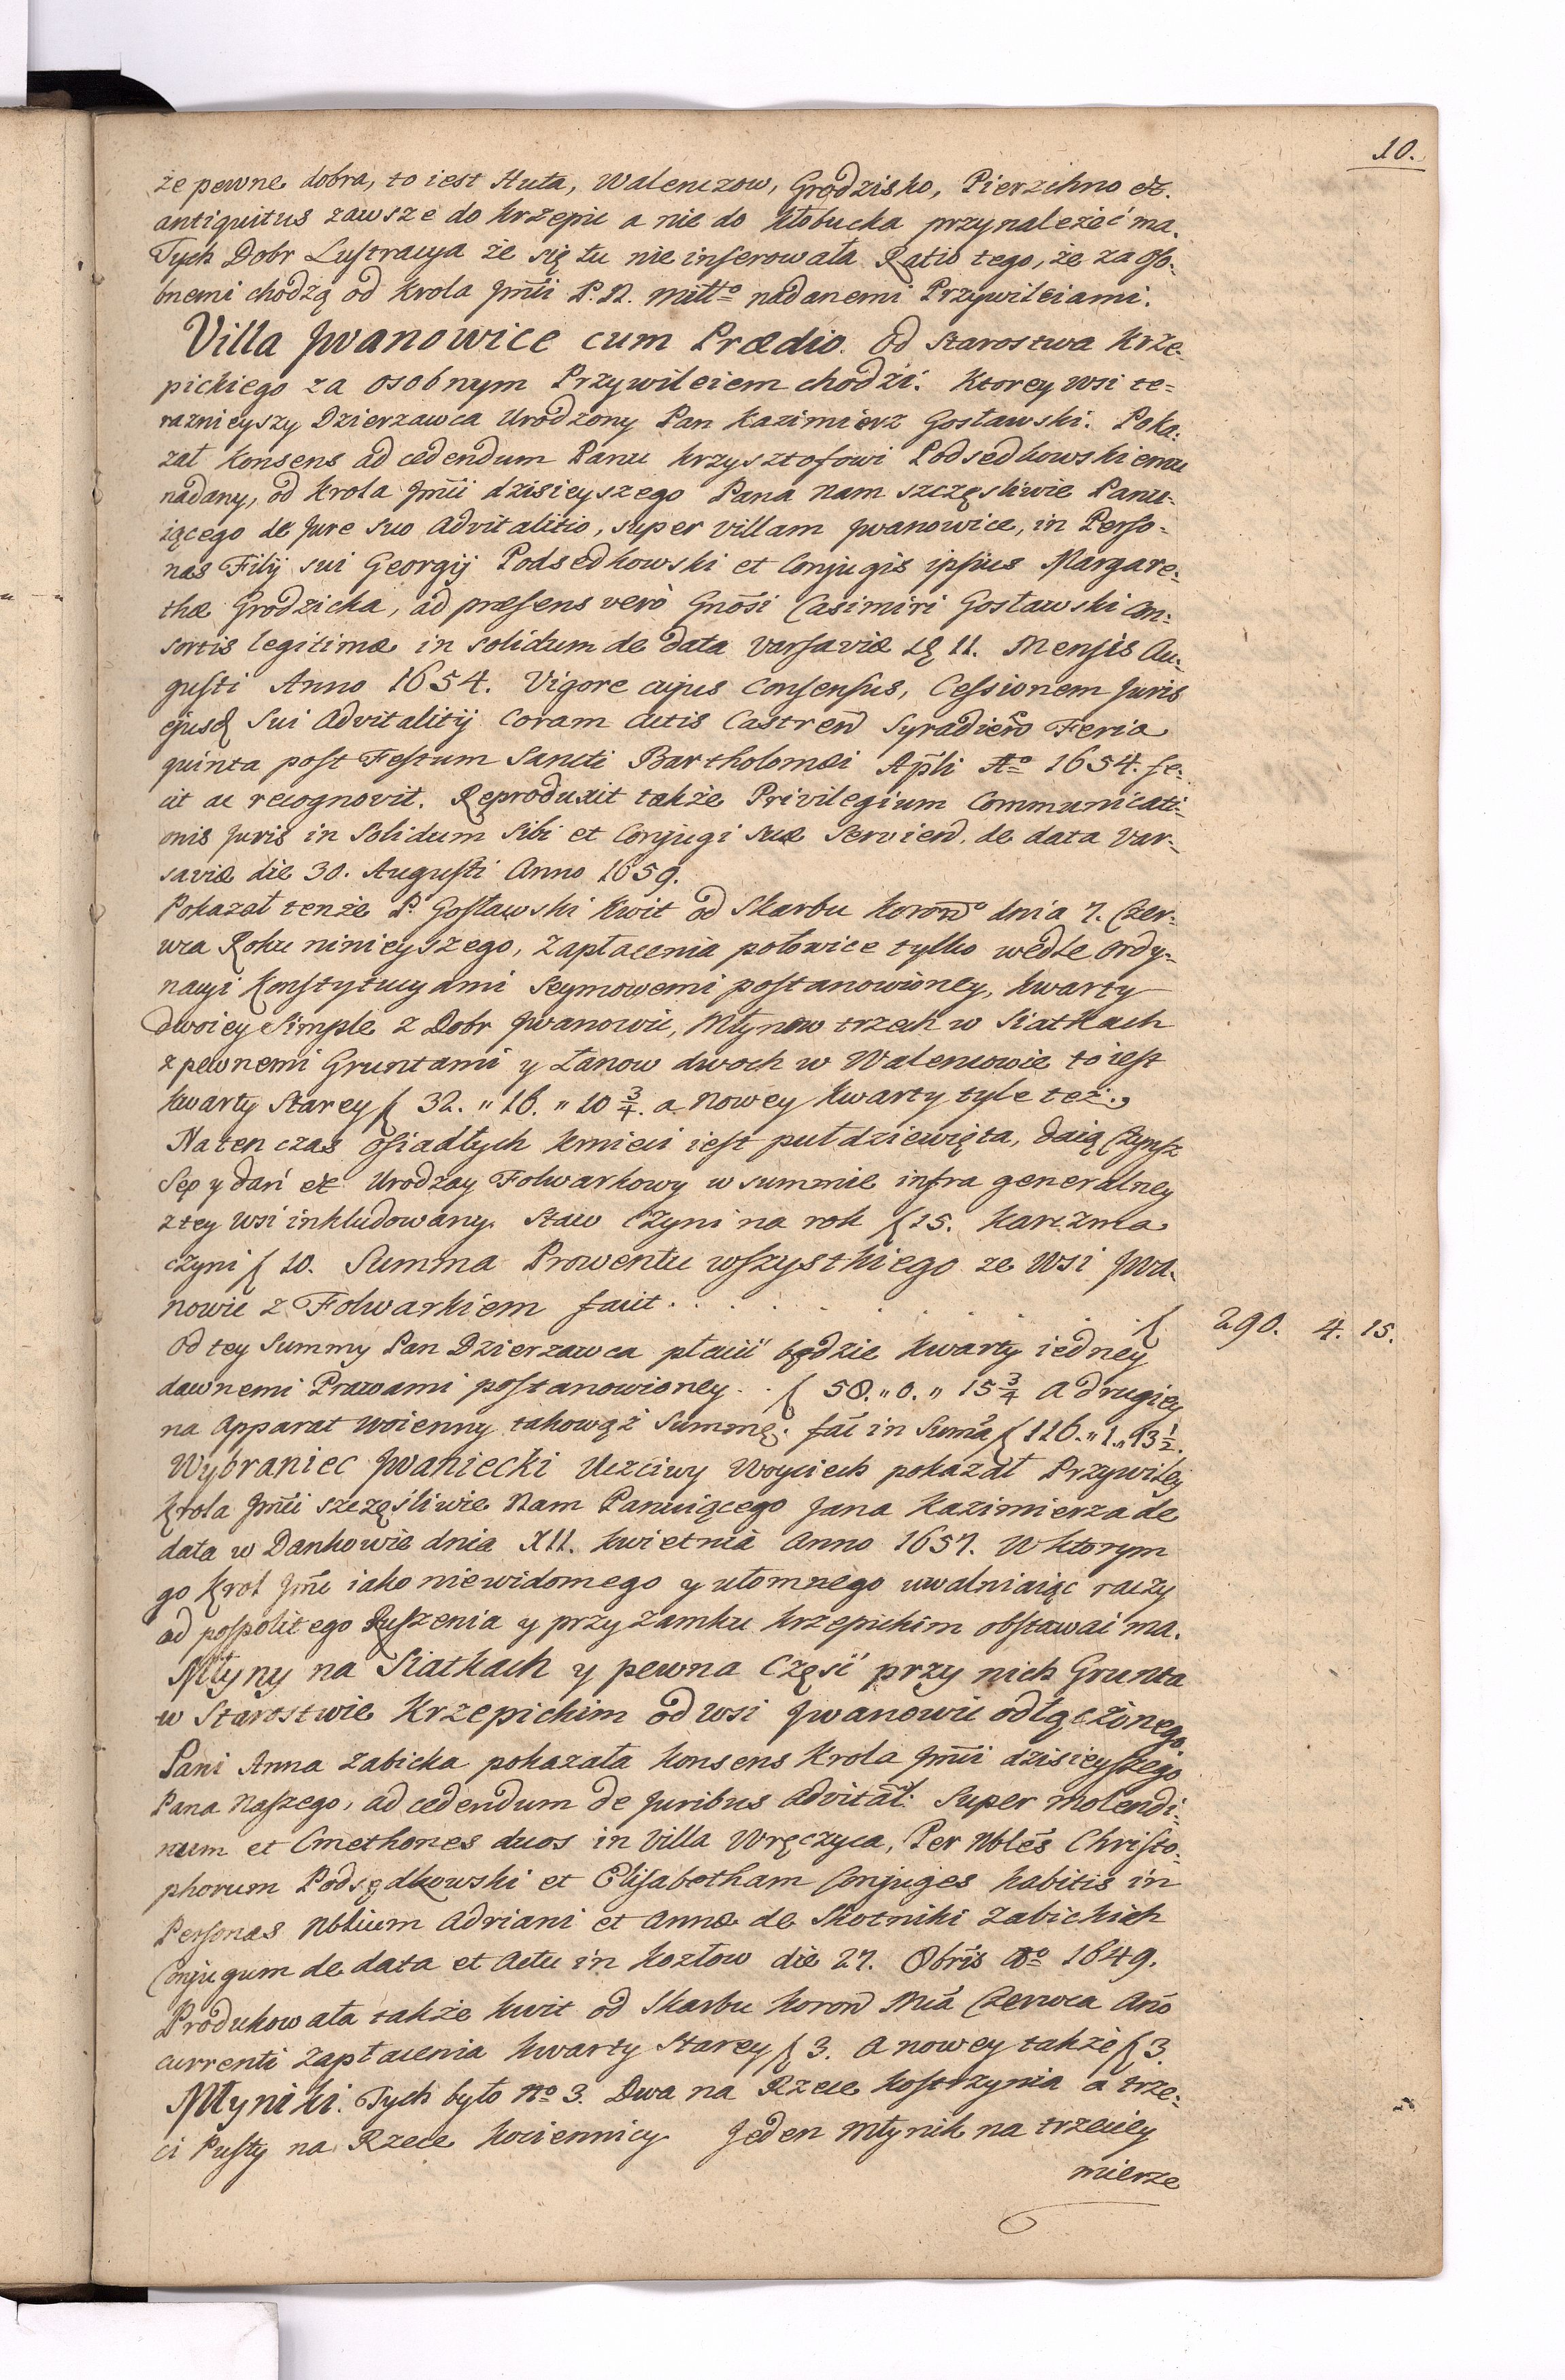 10.
że pewne dobra, to iest Huta, Walenczow, Grodzisko, Pierzchno etc.
antiquitus zawsze do Krzepic a nie do Kłobucka przynależeć ma.
Tych Dobr Lustracya że się tu nie inserowała Ratio tego, że za oso-
bnemi chodzą od Krola Jmci P. N. Miłło nadanemi Przywileiami.
Villa Jwanowice cum Prædio. Od Starostwa Krze-
pickiego za osobnym Przywileiem chodzi. Ktorey wsi te-
raznieyszy Dzierzawca Urodzony Pan Kazimierz Gosławski. Poka-
zał Konsens ad cedendum Panu Krzysztofowi Podsedkowskiemu
nadany, od Krola Jmci dzisieyszego Pana nam szczęsliwie Panu-
iącego de Jure suo Advitalitio, super villam Jwanowice, in Perso-
nas Filij sui Georgij Podsedkowski et Conjugis ipsius Margare-
thæ Grodzicka, ad præsens verò Gnosi Casimiri Gosławski Con-
sortis legitimæ in solidum de data Varsaviæ 11. Mensis Au-
gusti Anno 1654. Vigore cujus Consensus, Cessionem Juris
ejusd Sui Advitalitij Coram Actis Castren Syradien Feria
quinta post Festum Sancti Bartholomæi Apli Ao 1654. fe-
cit ac recognovit. Reproduxit także Privilegium Communicati-
onis Juris in Solidum Sibi et Conjugi suæ Servien. de data Var-
saviæ die 30. Augusti Anno 1659.
Pokazał tenże P. Gosławski Kwit od Skarbu Koronno dnia 7. Czer-
wca Roku ninieyszego, zapłacenia połowice tylko wedle ordy-
nacyi Konstytucyami Seymowemi postanowioney, Kwarty
dwoiey Simple z Dobr Jwanowic, Młynow trzech w Siatkach
z pewnemi Gruntami y Łanow dwoch w Walencowie to iest
Kwarty Starey f 32. " 16. " 10 3/4. a Nowey Kwarty tyle też.
Na ten czas osiadłych Kmieci iest puł dziewięta, daią Czynsz
Sep y dań etc Urodzay Folwarkowy w summie infra generalney
z tey wsi inkludowany. Staw czyni na rok f 15. Karczma
czyni f 10. Summa Prowentu wszystkiego ze wsi Jwa-
nowic z Folwarkiem facit . . . . . . . f 290. 4. 15.
Od tey Summy Pan Dzierzawca płacić będzie Kwarty iedney
dawnemi Prawami postanowioney . . f 58. " 0. " 15 3/4 a drugiey
na Apparat woienny takowąż Summę. fac in Suma f 116. " 1. " 13 1/2.
Wybraniec Jwaniecki Uczciwy Woyciech pokazał Przywiley
Krola Jmci szczęśliwie Nam Panuiącego Jana Kazimierza de
data w Dankowie dnia XII. Kwietnia Anno 1657. W ktorym
go Krol Jmc iako niewidomego y ułomnego uwalniaiąc raczy
od pospolitego Ruszenia y przy Zamku Krzepickim obstawać ma.
Młyny na Siatkach y pewna Część przy nich Grunta
w Starostwie Krzepickim od wsi Jwanowic odłączonego
Pani Anna Zabicka pokazała Konsens Krola Jmci dzisieyszego
Pana Naszego, ad cedendum de Juribus advital. Super Molendi-
num et Cmethones duos in Villa Wręczyca, Per Nbles Christo-
phorum Podsędkowski et Elisabetham Conjuges habitis in
Personas Nblium Adriani et Annæ de Skotniki Zabickich
Conjugum de data et Actu in Kozłow die 27. Obris Ao 1649.
Produkowała także Kwit od Skarbu Koron Mca Czerwca Ano
currenti zapłacenia Kwarty Starey f 3. a nowey także f 3.
Młyniki. Tych było No 3. Dwa na Rzece Kostrzynia a trze-
ci Pusty na Rzece Kociennicy Jeden Młynik na trzeciey
mierze